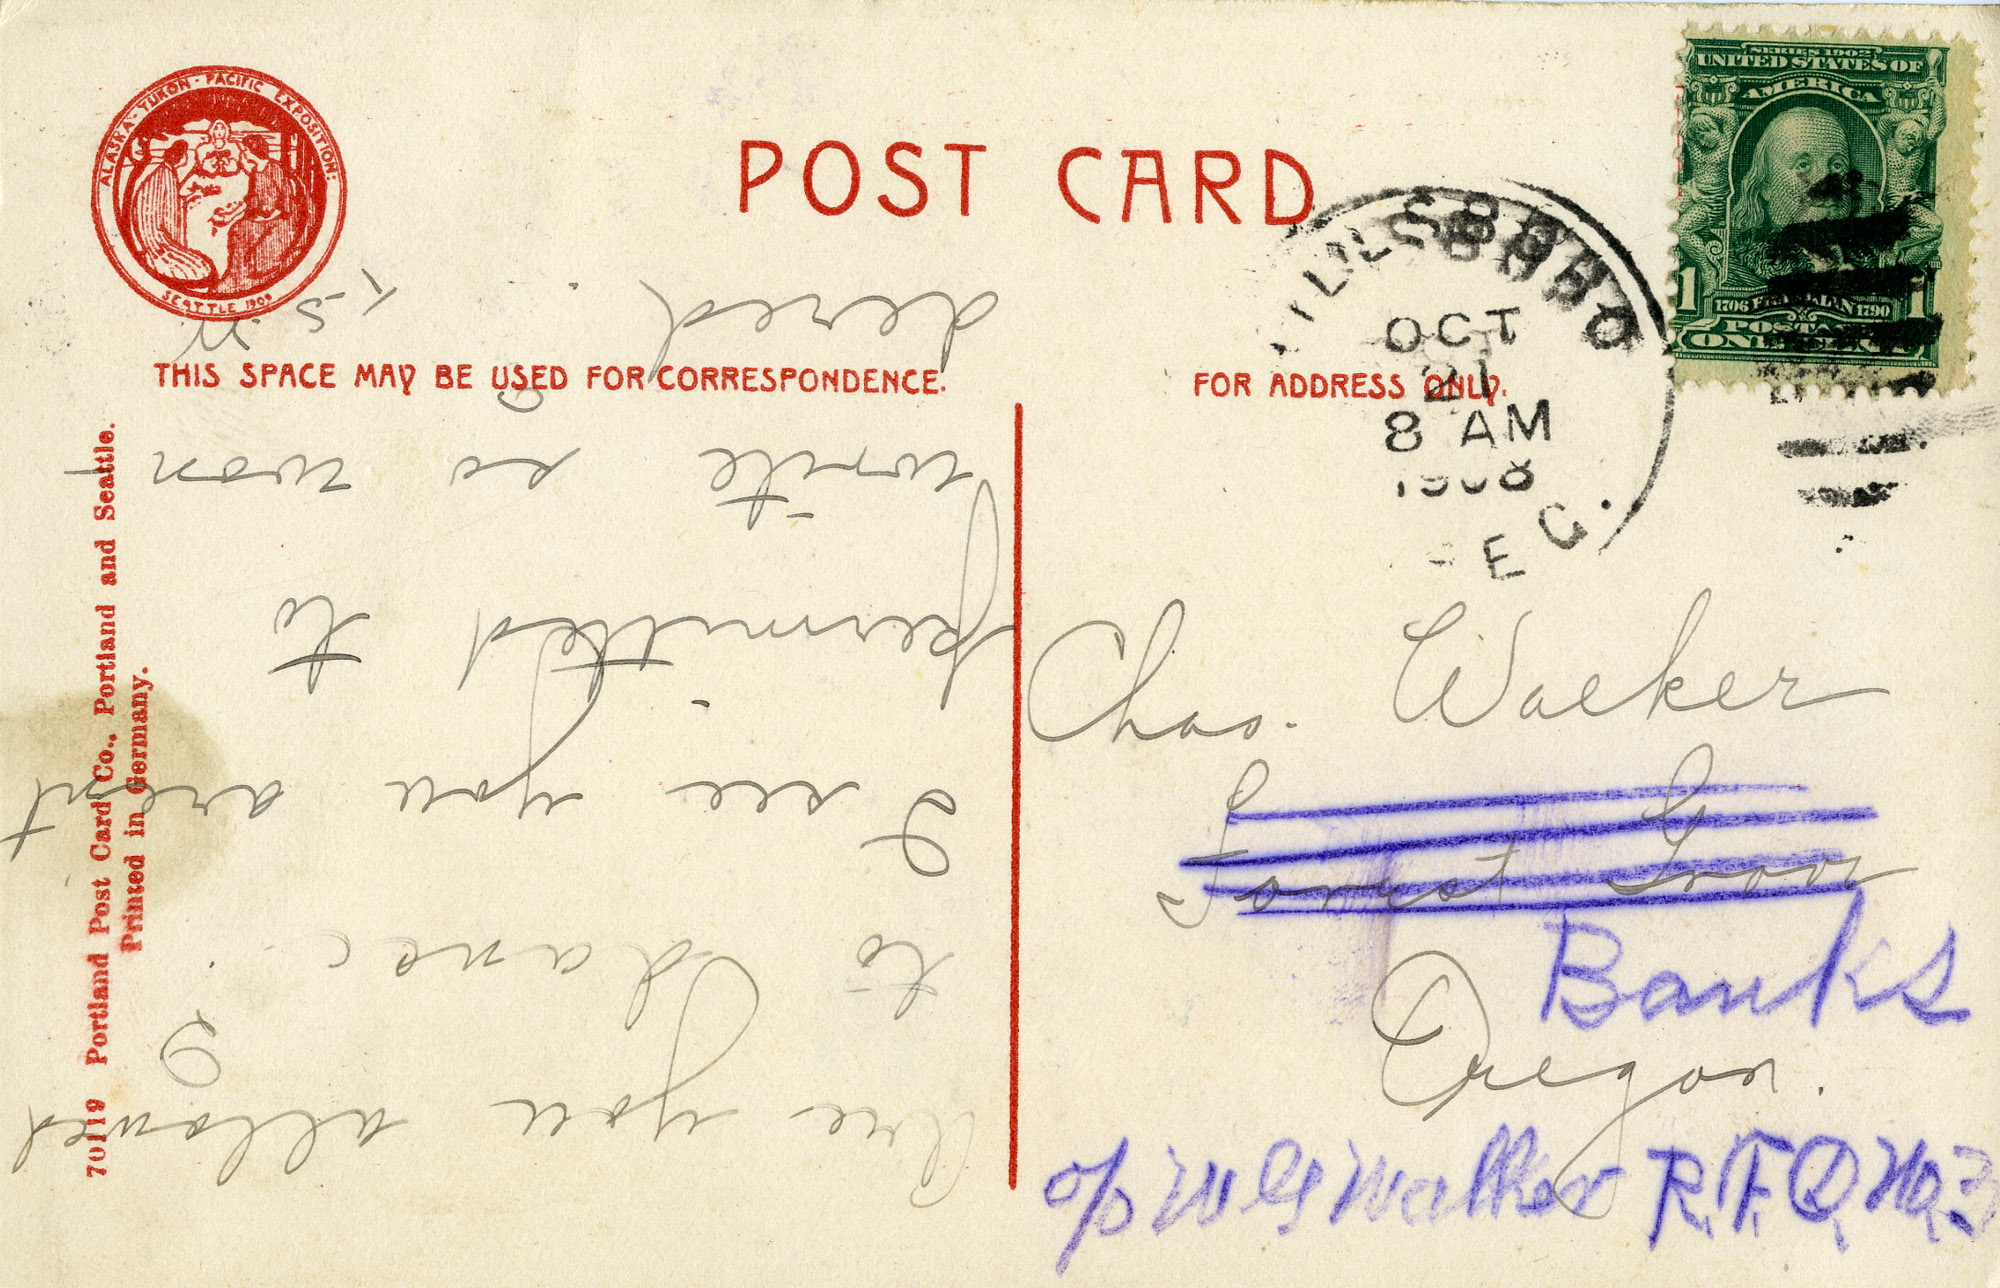 ALASKA-YUKON-PACIFIC EXPOSITION.
SEATTLE 1909
POST CARD
THIS SPACE MAY BE USED FOR CORRESPONDENCE.
FOR ADDRESS ONLY.
70119 Portland Post Card Co., Portland and Seattle.
Printed in Germany.
SERIES 1902
UNITED STATES OF
AMERICA
1706 FRANKLIN 1790
1 1
POSTAGE
ONE CENT
HILLSBORO
OCT
21
8 AM
1908
OREG.
Chas. Walker
Forrest Grove
Banks
Oregon.
c/o W G Walker R.F.D No 3
Are you allowed
to dance ?
I see you arent
permitted to
write so won
dered.